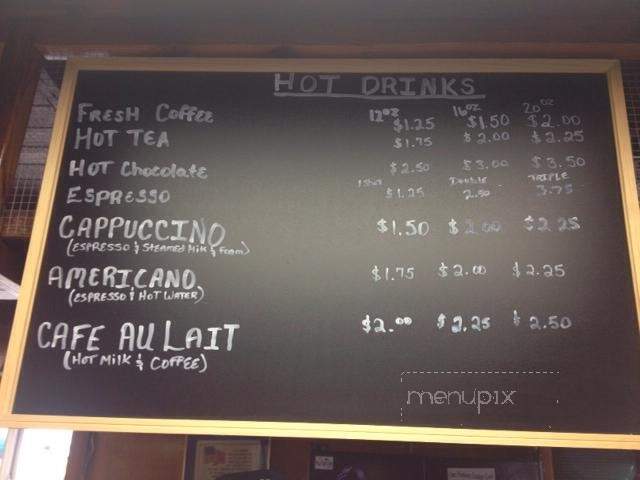 HOT DRINKS
12oz 16oz 20oz
FRESH Coffee $1.25 $1.50 $2.00
HOT TEA $1.75 $2.00 $2.25
HOT Chocolate $2.50 $3.00 $3.50
1 shot Double TRIPLE
ESPRESSO $1.25 2.50 3.75
CAPPUCCINO $1.50 $2.00 $2.25
(ESPRESSO & STEAMED MilK & Foam)
AMERICANO $1.75 $2.00 $2.25
(ESPRESSO & HOT WATER)
CAFE AU LAIT $2.00 $2.25 $2.50
(HOT MilK & COFFEE)
menupix